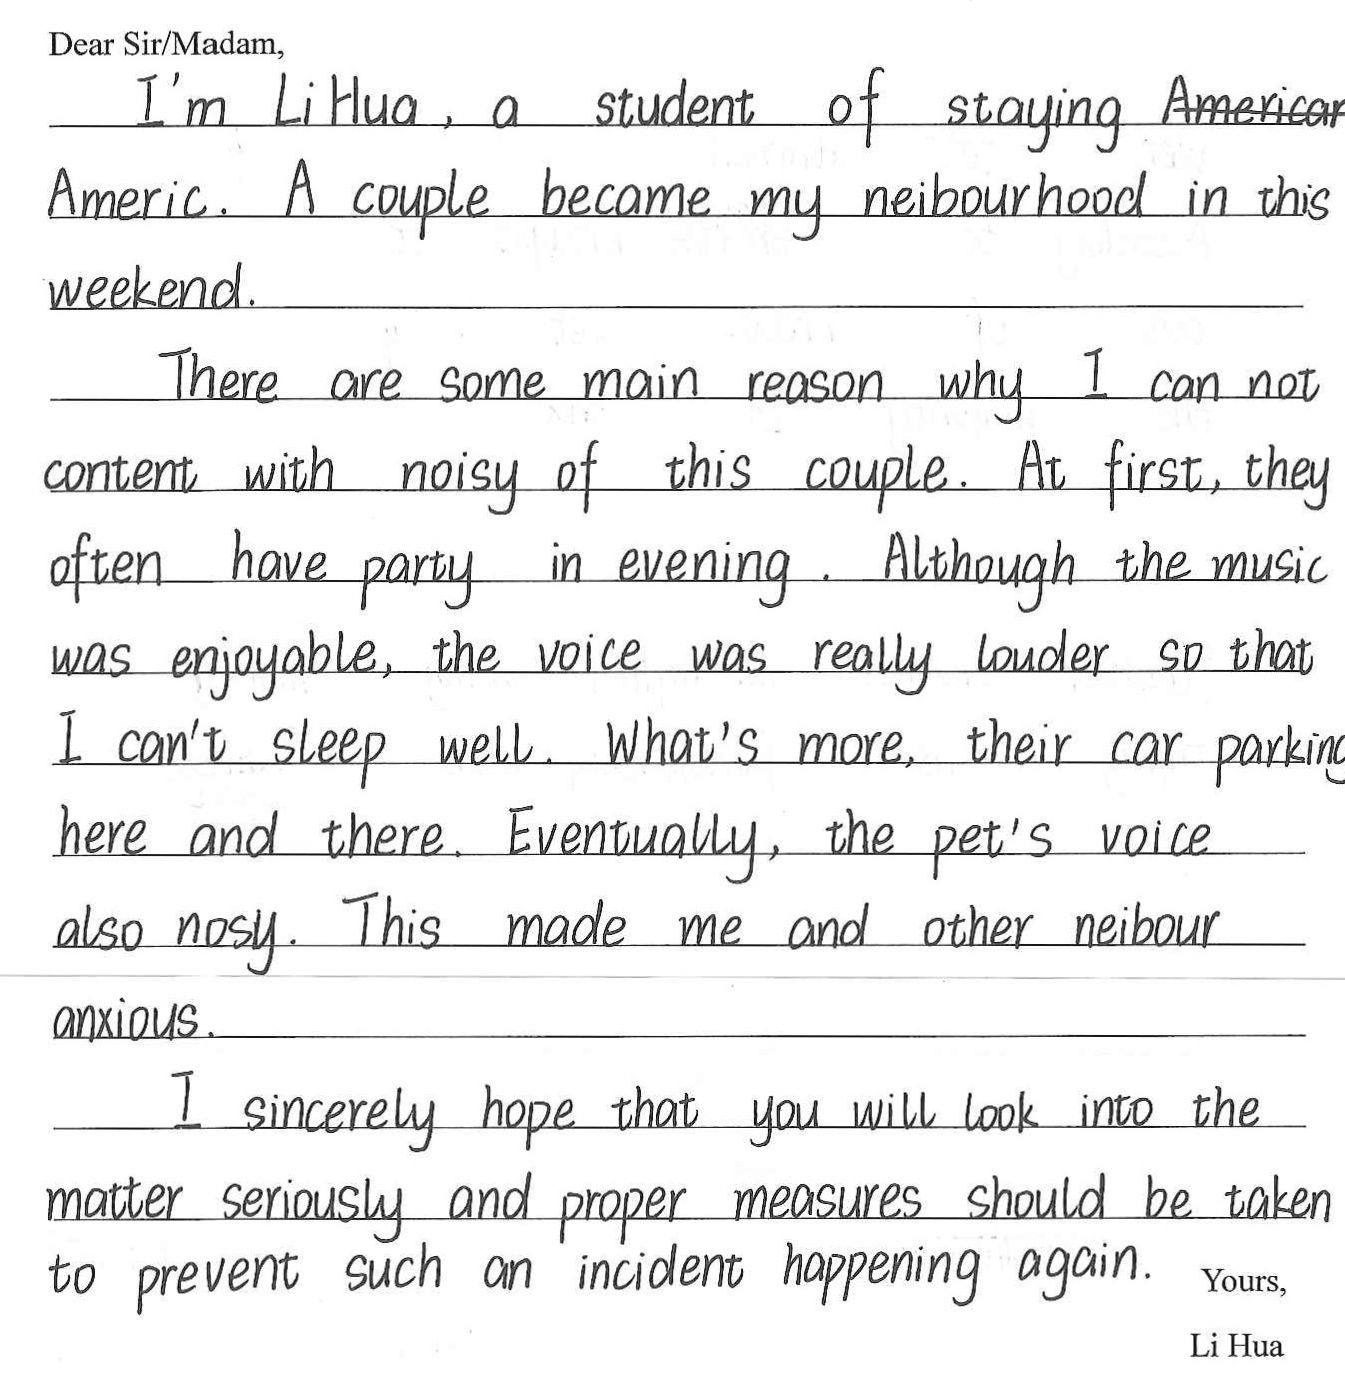 Dear Sir/Madam,
I'm Li Hua, a student of staying American
Americ. A couple became my neibourhood in this
weekend.
There are some main reason why I can not
content with noisy of this couple. At first, they
often have party in evening. Although the music
was enjoyable, the voice was really louder so that
I can't sleep well. What's more, their car parking
here and there. Eventually, the pet's voice
also nosy. This made me and other neibour
anxious.
I sincerely hope that you will look into the
matter seriously and proper measures should be taken
to prevent such an incident happening again. Yours,
Li Hua